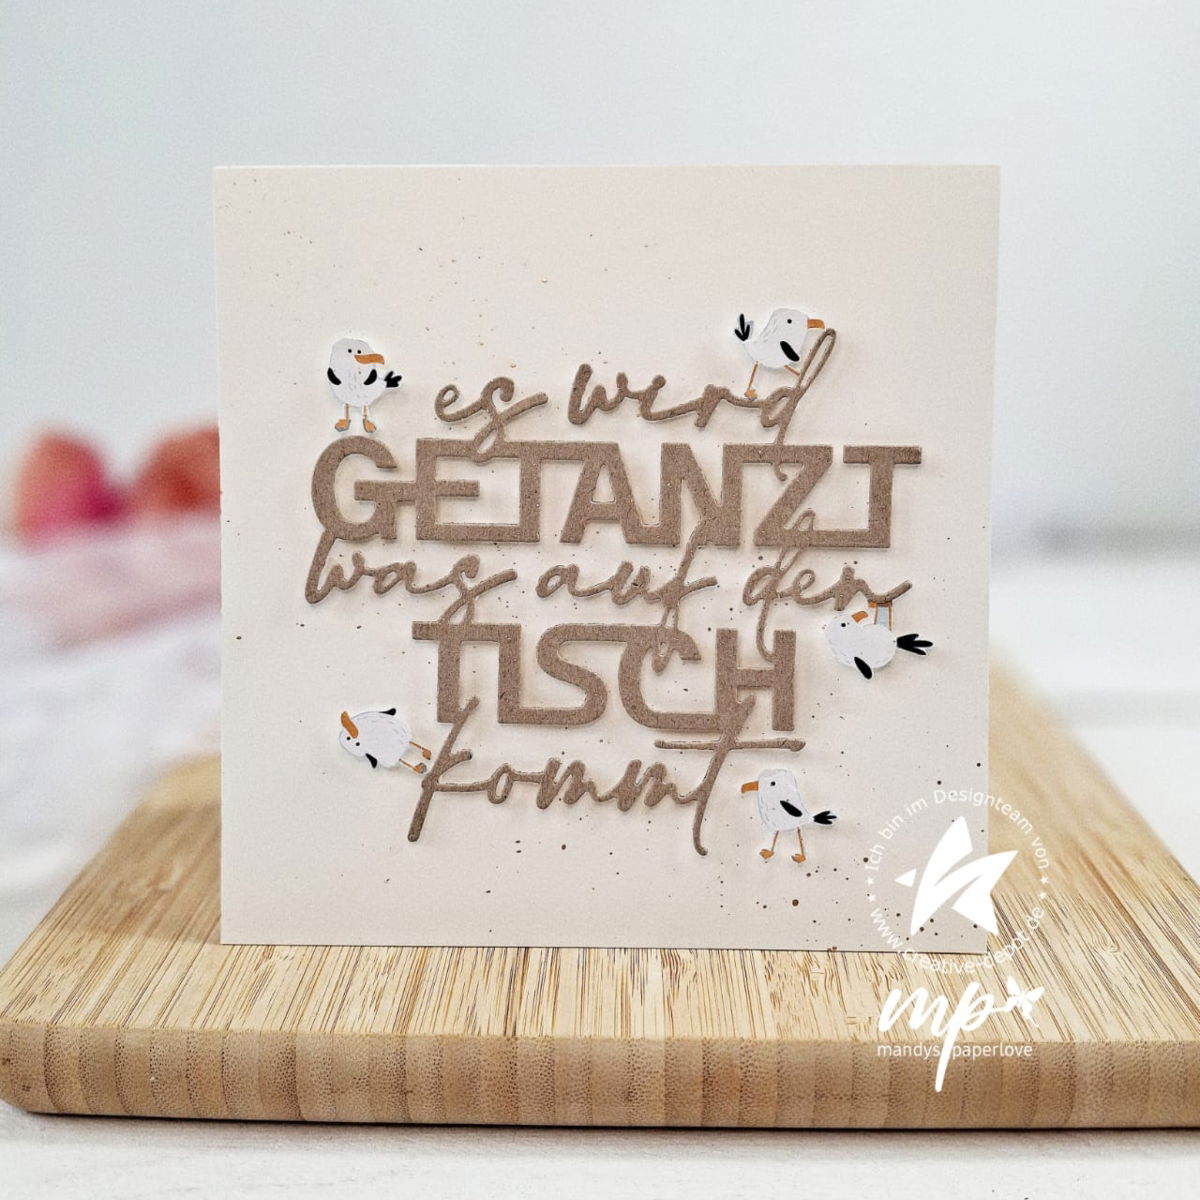 es wird
GETANZT
was auf den
TISCH
kommt
Ich bin im Designteam von
www.creativerdepot.de
mp
mandys paperlove